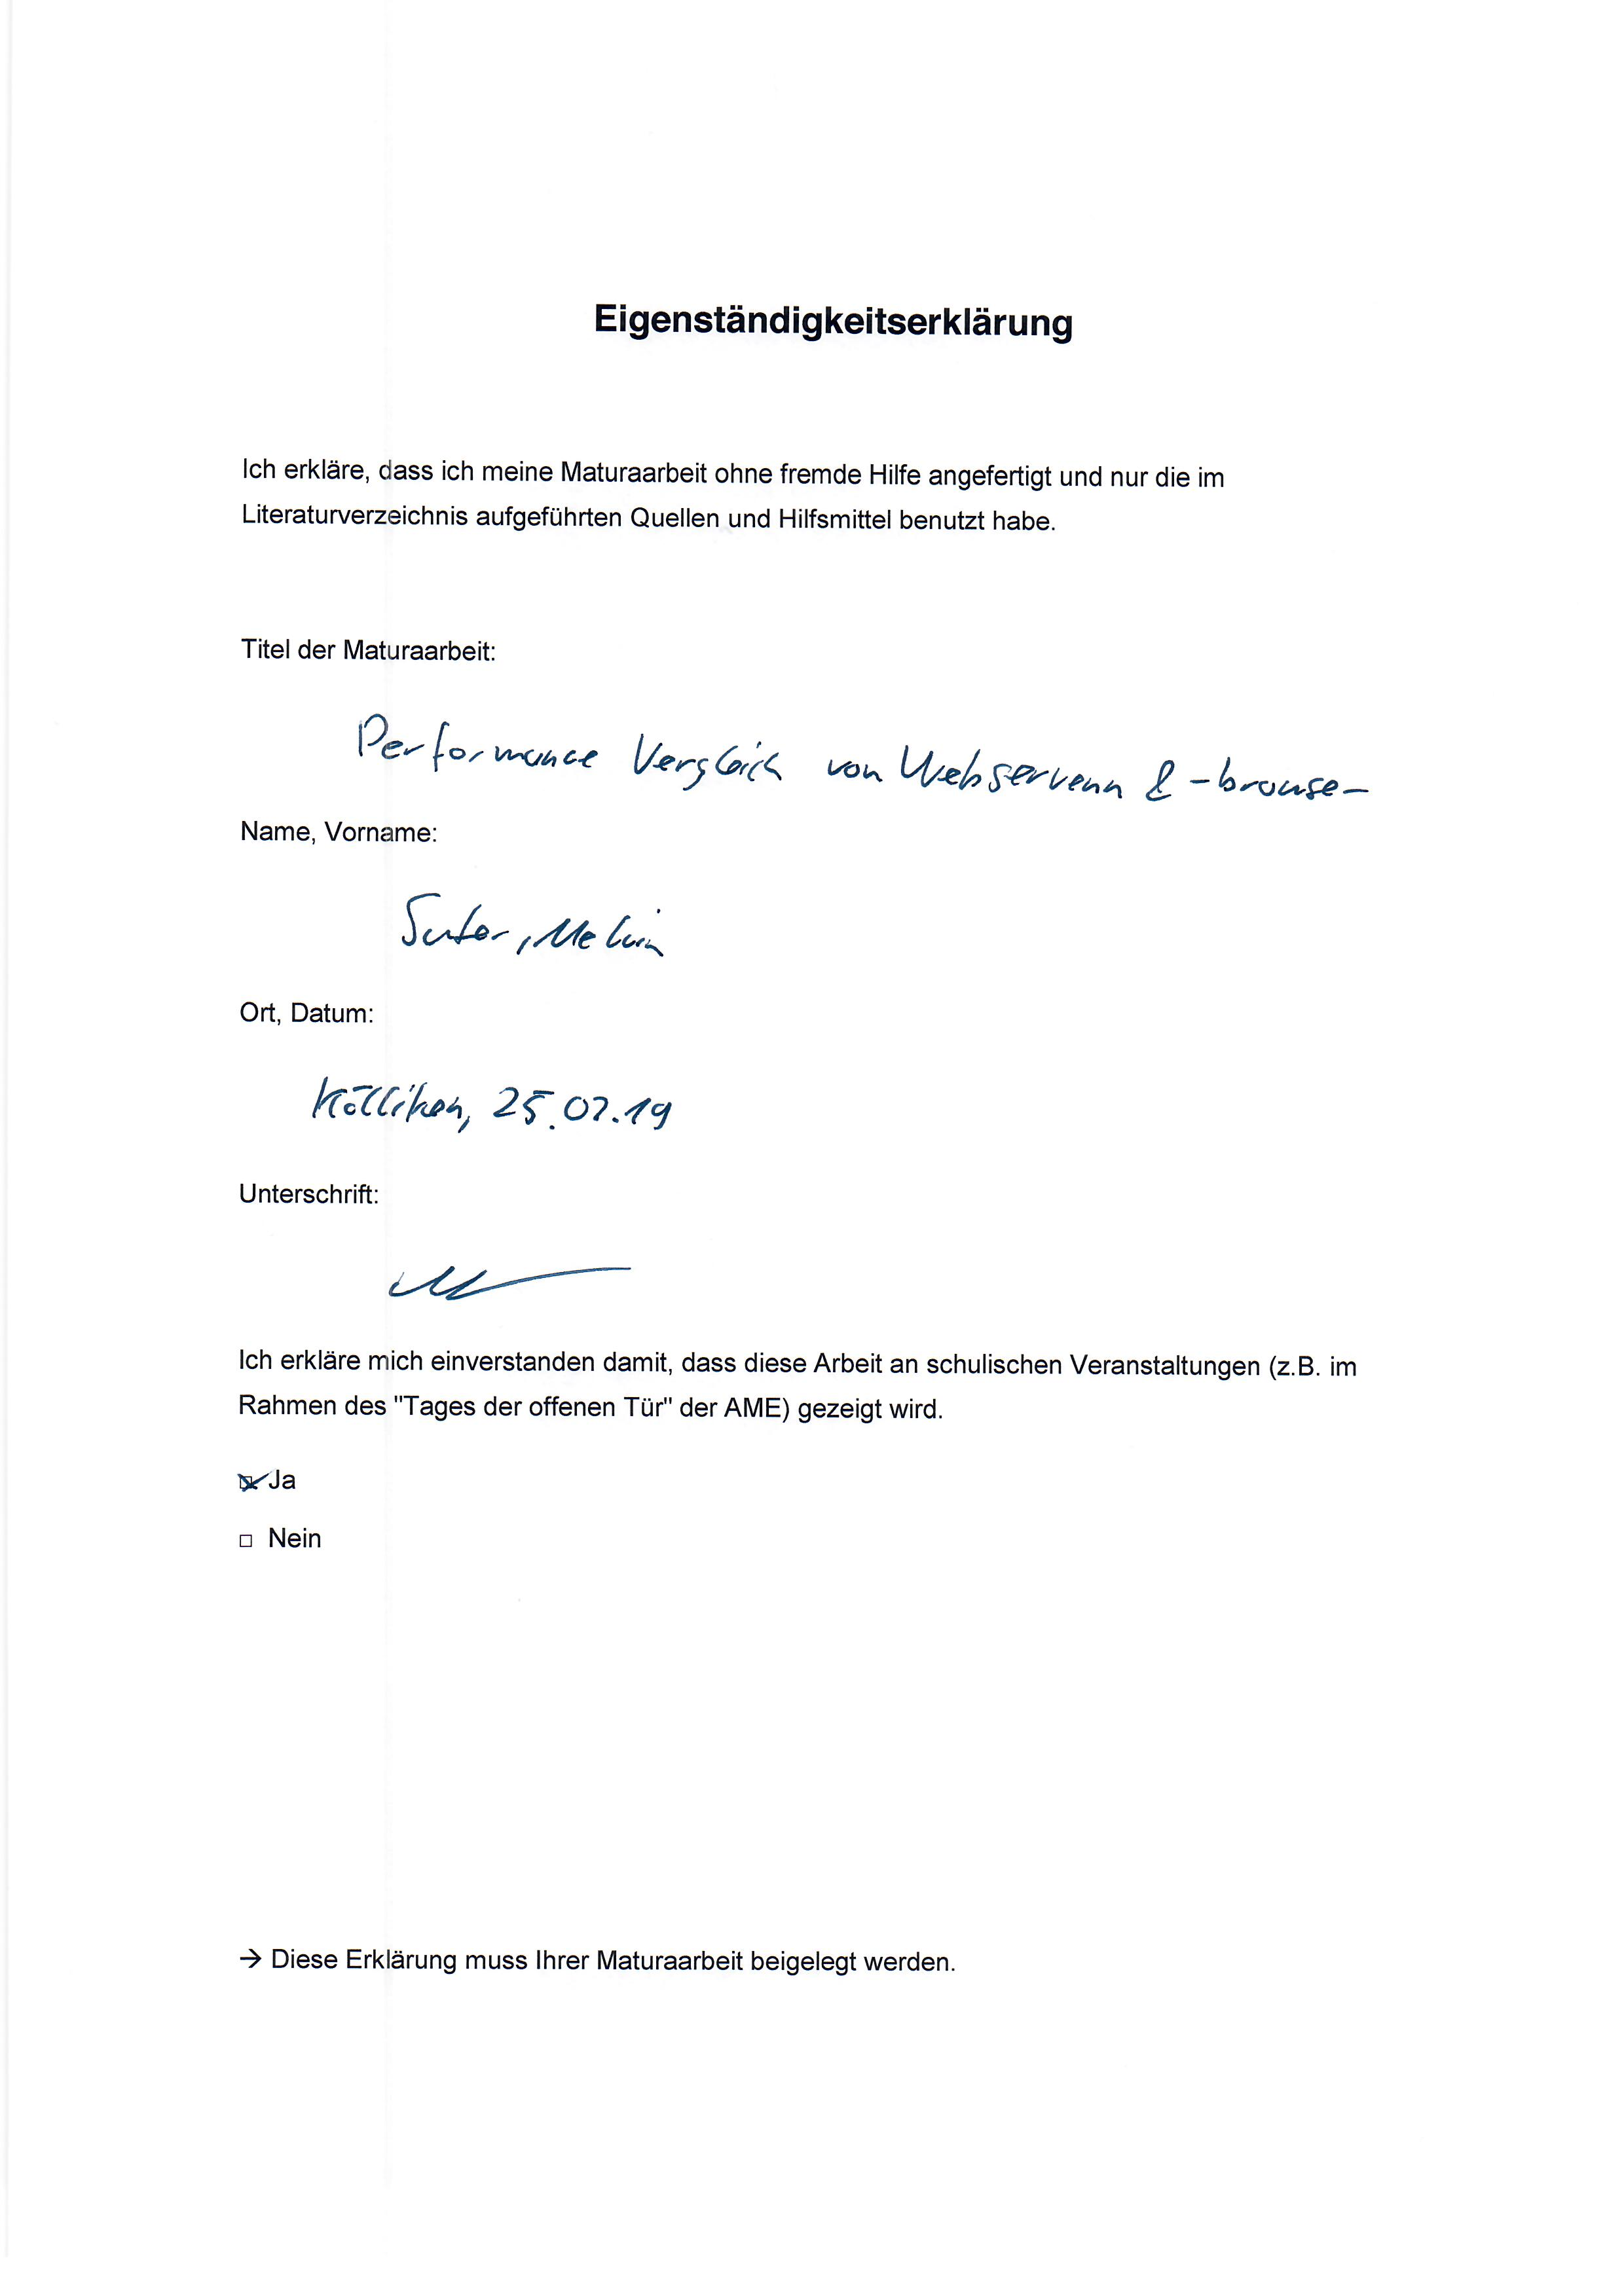 Eigenständigkeitserklärung
Ich erkläre, dass ich meine Maturaarbeit ohne fremde Hilfe angefertigt und nur die im
Literaturverzeichnis aufgeführten Quellen und Hilfsmittel benutzt habe.
Titel der Maturaarbeit:
Performance Vergleich von Webservern & -browser
Name, Vorname:
Suter, Melvin
Ort, Datum:
Kölliken, 25.02.19
Unterschrift:
Ich erkläre mich einverstanden damit, dass diese Arbeit an schulischen Veranstaltungen (z.B. im
Rahmen des "Tages der offenen Tür" der AME) gezeigt wird.
Ja
☐ Nein
→ Diese Erklärung muss Ihrer Maturaarbeit beigelegt werden.